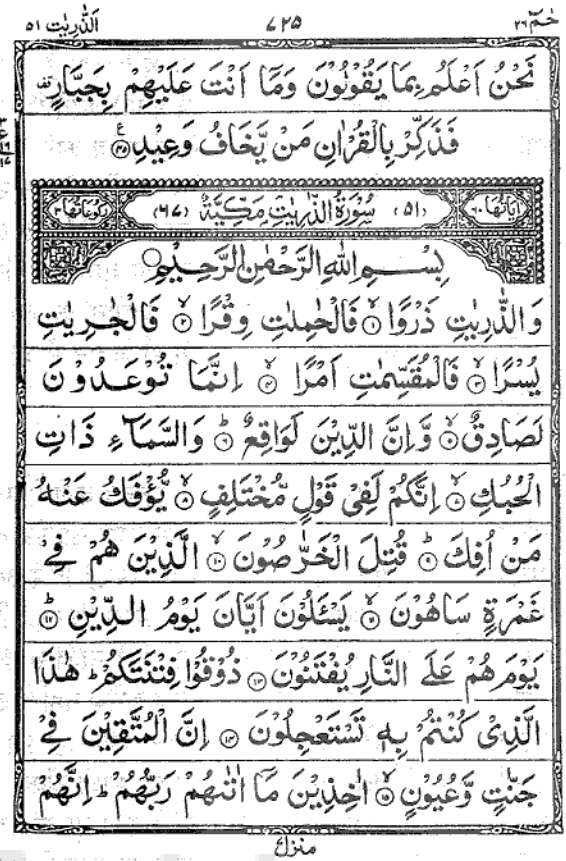 حٰمٓ ۲۶ ۷۲۵ الذّٰرِیٰت ۵۱
نَحْنُ اَعْلَمُ بِمَا یَقُوْلُوْنَ وَمَآ اَنْتَ عَلَیْهِمْ بِجَبَّارٍ
فَذَكِّرْ بِالْقُرْاٰنِ مَنْ یَّخَافُ وَعِیْدِ ﴿۴۵﴾
اٰیَاتُهَا ۶۰ (۵۱) سُوْرَةُ الذّٰرِیٰتِ مَكِّیَّةٌ (۶۷) رُكُوْعَاتُهَا ۳
بِسْمِ اللّٰهِ الرَّحْمٰنِ الرَّحِیْمِ
وَالذّٰرِیٰتِ ذَرْوًا ﴿۱﴾ فَالْحٰمِلٰتِ وِقْرًا ﴿۲﴾ فَالْجٰرِیٰتِ
یُسْرًا ﴿۳﴾ فَالْمُقَسِّمٰتِ اَمْرًا ﴿۴﴾ اِنَّمَا تُوْعَدُوْنَ
لَصَادِقٌ ﴿۵﴾ وَّاِنَّ الدِّیْنَ لَوَاقِعٌ ﴿۶﴾ وَالسَّمَآءِ ذَاتِ
الْحُبُكِ ﴿۷﴾ اِنَّكُمْ لَفِیْ قَوْلٍ مُّخْتَلِفٍ ﴿۸﴾ یُّؤْفَكُ عَنْهُ
مَنْ اُفِكَ ﴿۹﴾ قُتِلَ الْخَرّٰصُوْنَ ﴿۱۰﴾ الَّذِیْنَ هُمْ فِیْ
غَمْرَةٍ سَاهُوْنَ ﴿۱۱﴾ یَسْئَلُوْنَ اَیَّانَ یَوْمُ الدِّیْنِ ﴿۱۲﴾
یَوْمَ هُمْ عَلَی النَّارِ یُفْتَنُوْنَ ﴿۱۳﴾ ذُوْقُوْا فِتْنَتَكُمْ ؕ هٰذَا
الَّذِیْ كُنْتُمْ بِهٖ تَسْتَعْجِلُوْنَ ﴿۱۴﴾ اِنَّ الْمُتَّقِیْنَ فِیْ
جَنّٰتٍ وَّعُیُوْنٍ ﴿۱۵﴾ اٰخِذِیْنَ مَآ اٰتٰىهُمْ رَبُّهُمْ ؕ اِنَّهُمْ
منزل